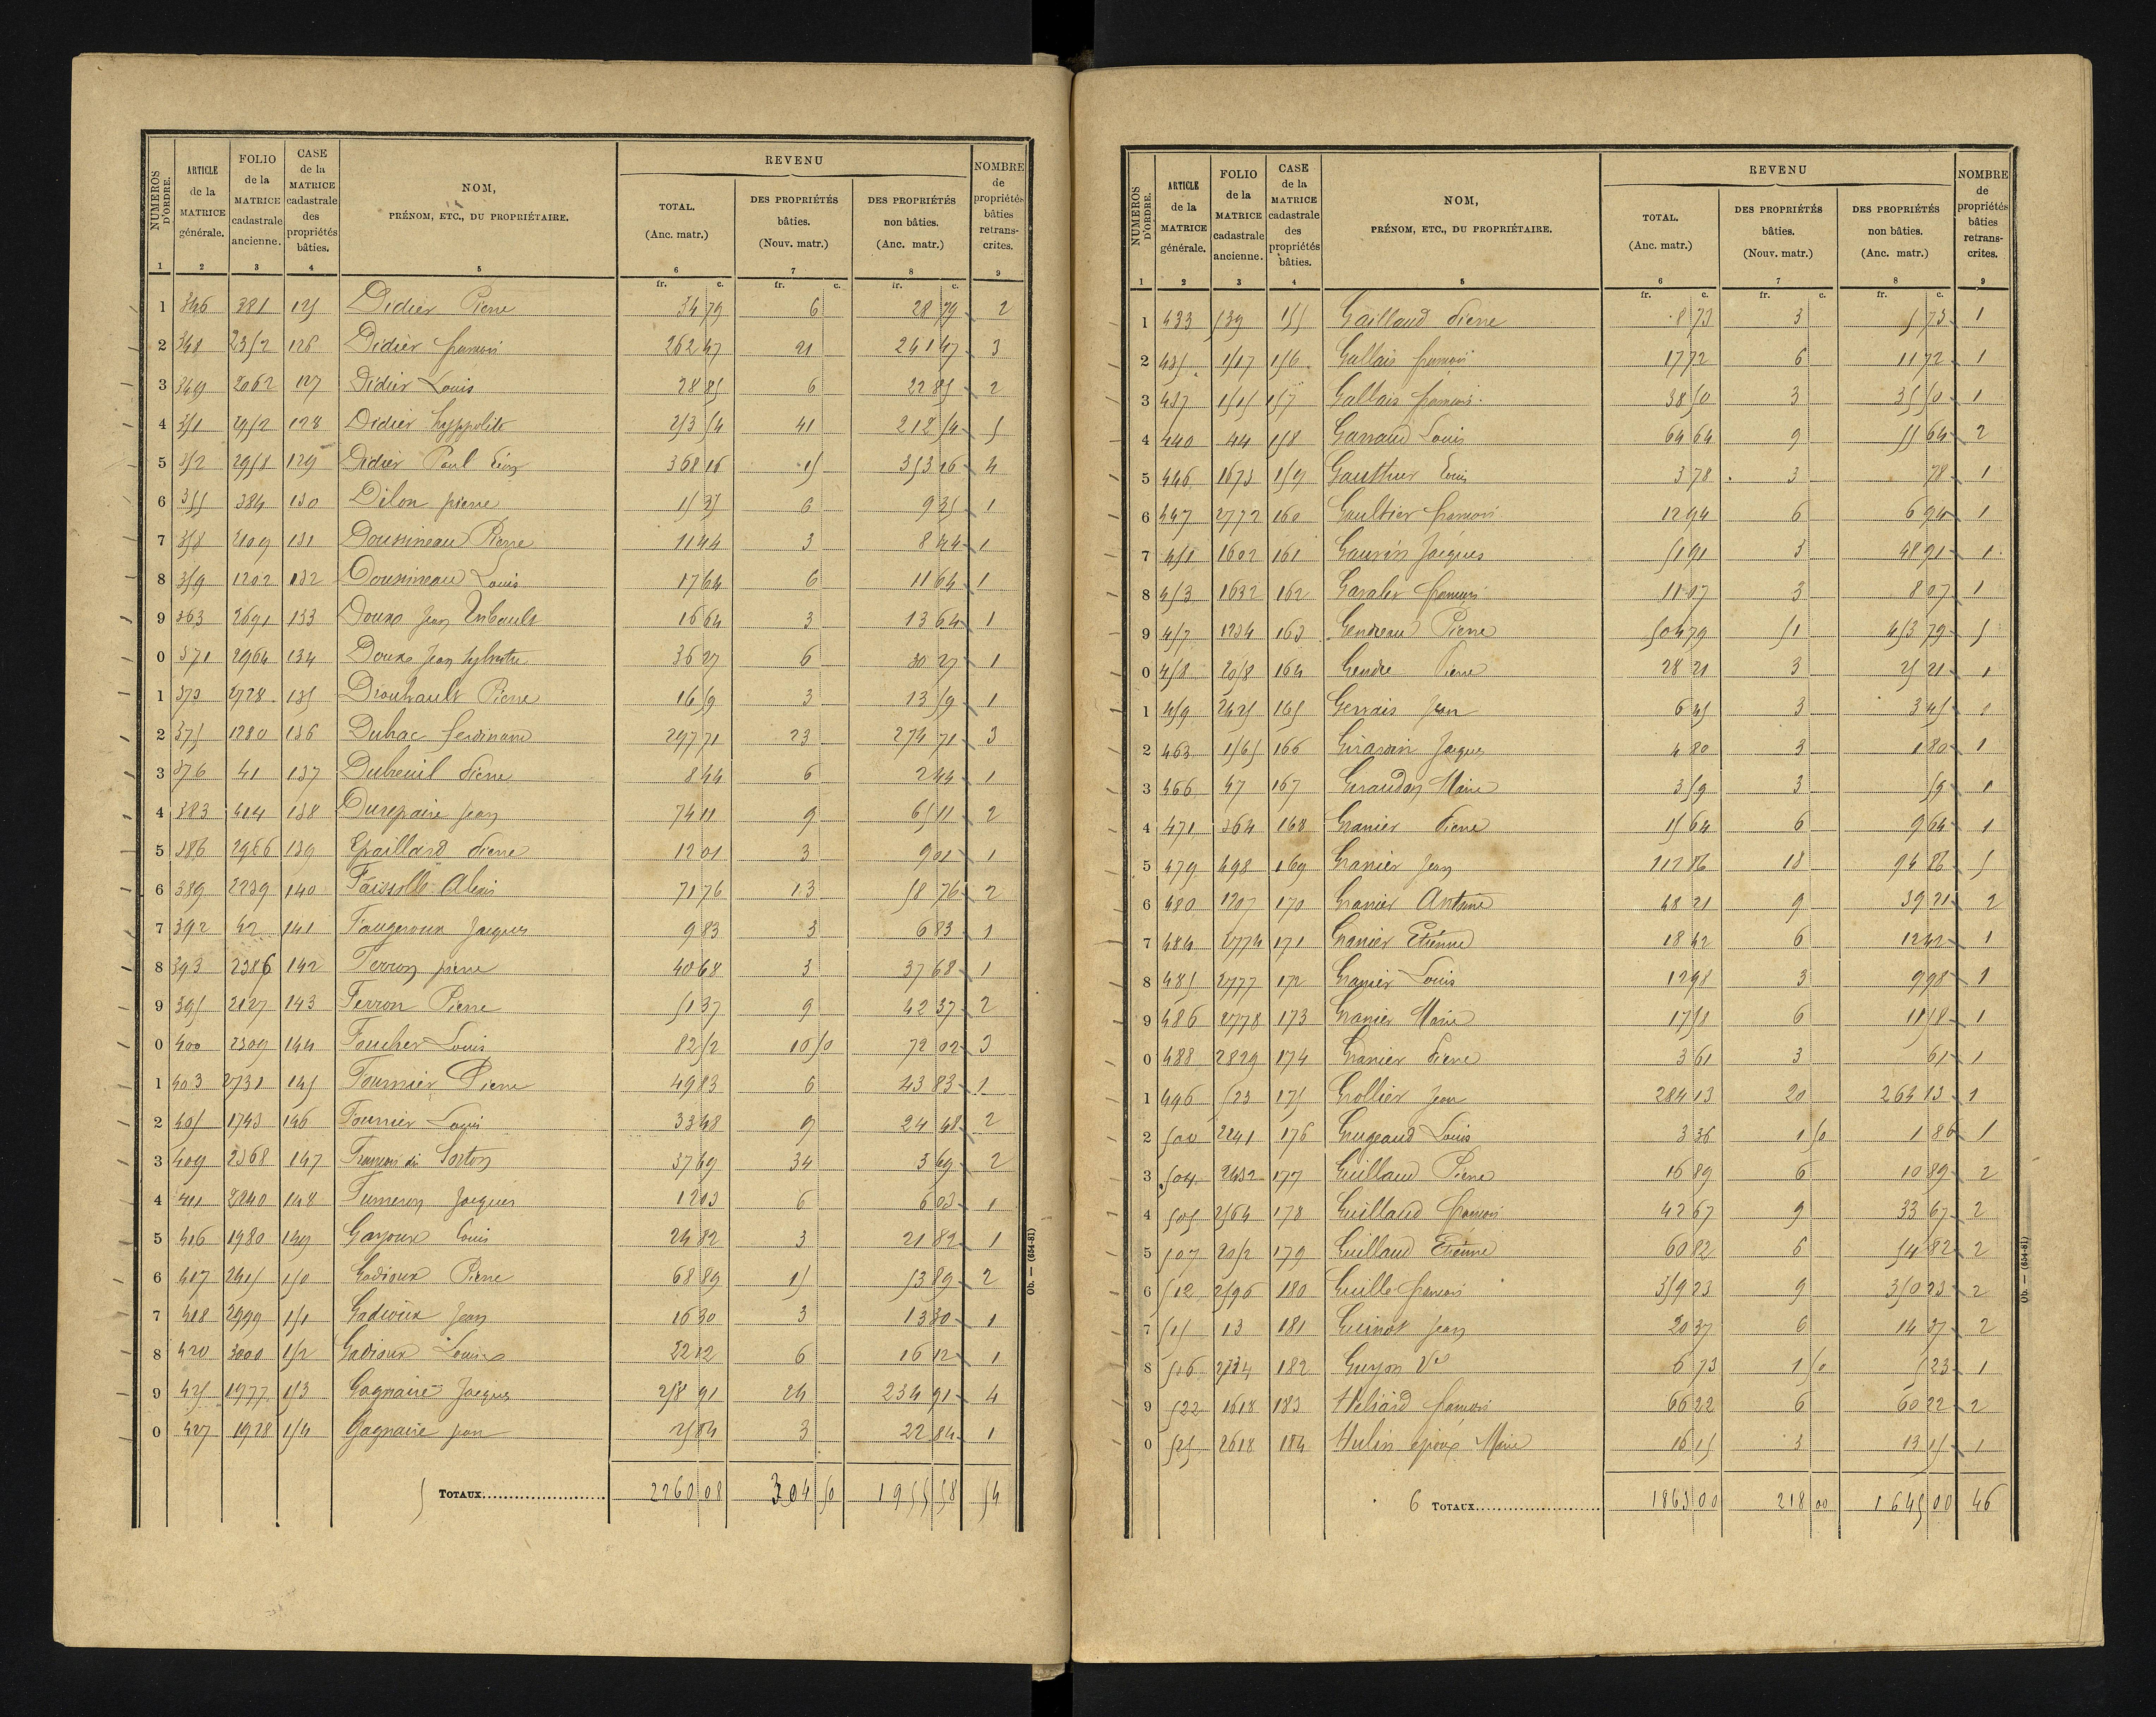 NUMÉROS D'ORDRE. | ARTICLE de la MATRICE générale. | FOLIO de la MATRICE cadastrale ancienne. | CASE de la MATRICE cadastrale des propriétés bâties. | NOM, PRÉNOM, ETC., DU PROPRIÉTAIRE. | REVENU TOTAL. (Anc. matr.) | DES PROPRIÉTÉS bâties. (Nouv. matr.) | DES PROPRIÉTÉS non bâties. (Anc. matr.) | NOMBRE de propriétés bâties retranscrites.
1 2 3 4 5 6 7 8 9
fr. c. fr. c. fr. c.
1 346 381 125 Didier Pierre 34 79 6 28 79 2
2 348 2352 126 Didier françois 262 47 21 241 47 3
3 349 2062 127 Didier Louis 28 85 6 22 85 2
4 351 2952 128 Didier hyppolite 253 54 41 212 54 5
5 352 2958 129 Didier Paul Léon 368 16 15 353 16 4
6 355 384 130 Dilon pierre 15 35 6 9 35 1
7 358 2109 131 Doussineau Pierre 11 44 3 8 44 1
8 359 1202 132 Doussineau Louis 17 64 6 11 64 1
9 363 2691 133 Doux Jean Imbault 16 64 3 13 64 1
0 371 2964 134 Doux Jean Sylvestre 36 27 6 30 27 1
1 373 2728 135 Drouhault Pierre 16 59 3 13 59 1
2 375 1280 136 Dubac ferdinand 297 71 23 274 71 3
3 376 41 137 Dubreuil Pierre 8 44 6 2 44 1
4 383 414 138 Durepaire Jean 74 11 9 65 11 2
5 386 2966 139 Epaillard Pierre 12 01 3 9 01 1
6 389 2239 140 Faissolle Alexis 71 76 13 58 76 2
7 392 42 141 Faugeroux Jacques 9 83 3 6 83 1
8 393 2386 142 Ferron pierre 40 68 3 37 68 1
9 395 2127 143 Ferron Pierre 51 37 9 42 37 2
0 400 2309 144 Foucher Louis 82 52 10 50 72 02 3
1 403 2731 145 Fournier Pierre 49 83 6 43 83 1
2 405 1743 146 Fournier Louis 33 48 9 24 48 2
3 409 2368 147 François dit Sorton 37 69 34 3 69 2
4 411 2240 148 Fumeron Jacques 12 03 6 6 03 1
5 416 1980 149 Gayoux Louis 24 82 3 21 82 1
6 417 2415 150 Gadioux Pierre 68 89 15 53 89 2
7 418 2999 151 Gadioux Jean 16 30 3 13 30 1
8 420 3000 152 Gadioux Louis 22 12 6 16 12 1
9 425 1977 153 Gagnaire Jacques 258 91 24 234 91 4
0 427 1978 154 Gagnaire jean 25 84 3 22 84 1
5 TOTAUX 2260 08 304 50 1955 58 54
Ob. — (654-81)
NUMÉROS D'ORDRE. | ARTICLE de la MATRICE générale. | FOLIO de la MATRICE cadastrale ancienne. | CASE de la MATRICE cadastrale des propriétés bâties. | NOM, PRÉNOM, ETC., DU PROPRIÉTAIRE. | REVENU TOTAL. (Anc. matr.) | DES PROPRIÉTÉS bâties. (Nouv. matr.) | DES PROPRIÉTÉS non bâties. (Anc. matr.) | NOMBRE de propriétés bâties retranscrites.
1 2 3 4 5 6 7 8 9
fr. c. fr. c. fr. c.
1 433 539 155 Gaillaud Pierre 8 73 3 5 73 1
2 435 1517 156 Gallais françois 17 72 6 11 72 1
3 437 1515 157 Gallais françois 38 50 3 35 50 1
4 440 44 158 Garraud Louis 64 64 9 55 64 2
5 446 1673 159 Gauthier Louis 3 78 3 78 1
6 447 2772 160 Gaultier françois 12 94 6 6 94 1
7 451 1602 161 Gaurin Jacques 51 91 3 48 91 1
8 453 1632 162 françois 11 07 3 8 07 1
9 457 1234 163 Gendreau Pierre 504 79 51 453 79 5
0 458 2058 164 Gendre Pierre 28 21 3 25 21 1
1 459 2425 165 Gervais Jean 6 45 3 3 45 1
2 463 1565 166 Girardin Jacques 4 80 3 1 80 1
3 466 47 167 Giraudon Marie 3 59 3 59 1
4 471 564 168 Granier Pierre 15 64 6 9 64 1
5 479 498 169 Granier Jean 112 86 18 94 86 5
6 480 1207 170 Granier Antoine 48 21 9 39 21 2
7 484 2774 171 Granier Etienne 18 42 6 12 42 1
8 485 2777 172 Granier Louis 12 98 3 9 98 1
9 486 2778 173 Granier Marie 17 58 6 11 58 1
0 488 2829 174 Granier Pierre 3 61 3 61 1
1 496 523 175 Grollier Jean 284 13 20 264 13 1
2 500 2241 176 Grugeaud Louis 3 36 1 50 1 86 1
3 504 2432 177 Guillaud Pierre 16 89 6 10 89 2
4 505 2564 178 Guillaud françois 42 67 9 33 67 2
5 507 2052 179 Guillaud Etienne 60 82 6 54 82 2
6 512 2596 180 Guille françois 359 23 9 350 23 2
7 515 13 181 Guinot Jean 20 37 6 14 37 2
8 516 2734 182 Guyon Vve 6 73 1 50 5 23 1
9 522 1618 183 Héliard françois 66 22 6 60 22 2
0 525 2618 184 Hulin époux Marie 16 15 3 13 15 1
6 TOTAUX 1863 00 218 00 1645 00 46
Ob. — (654-81)